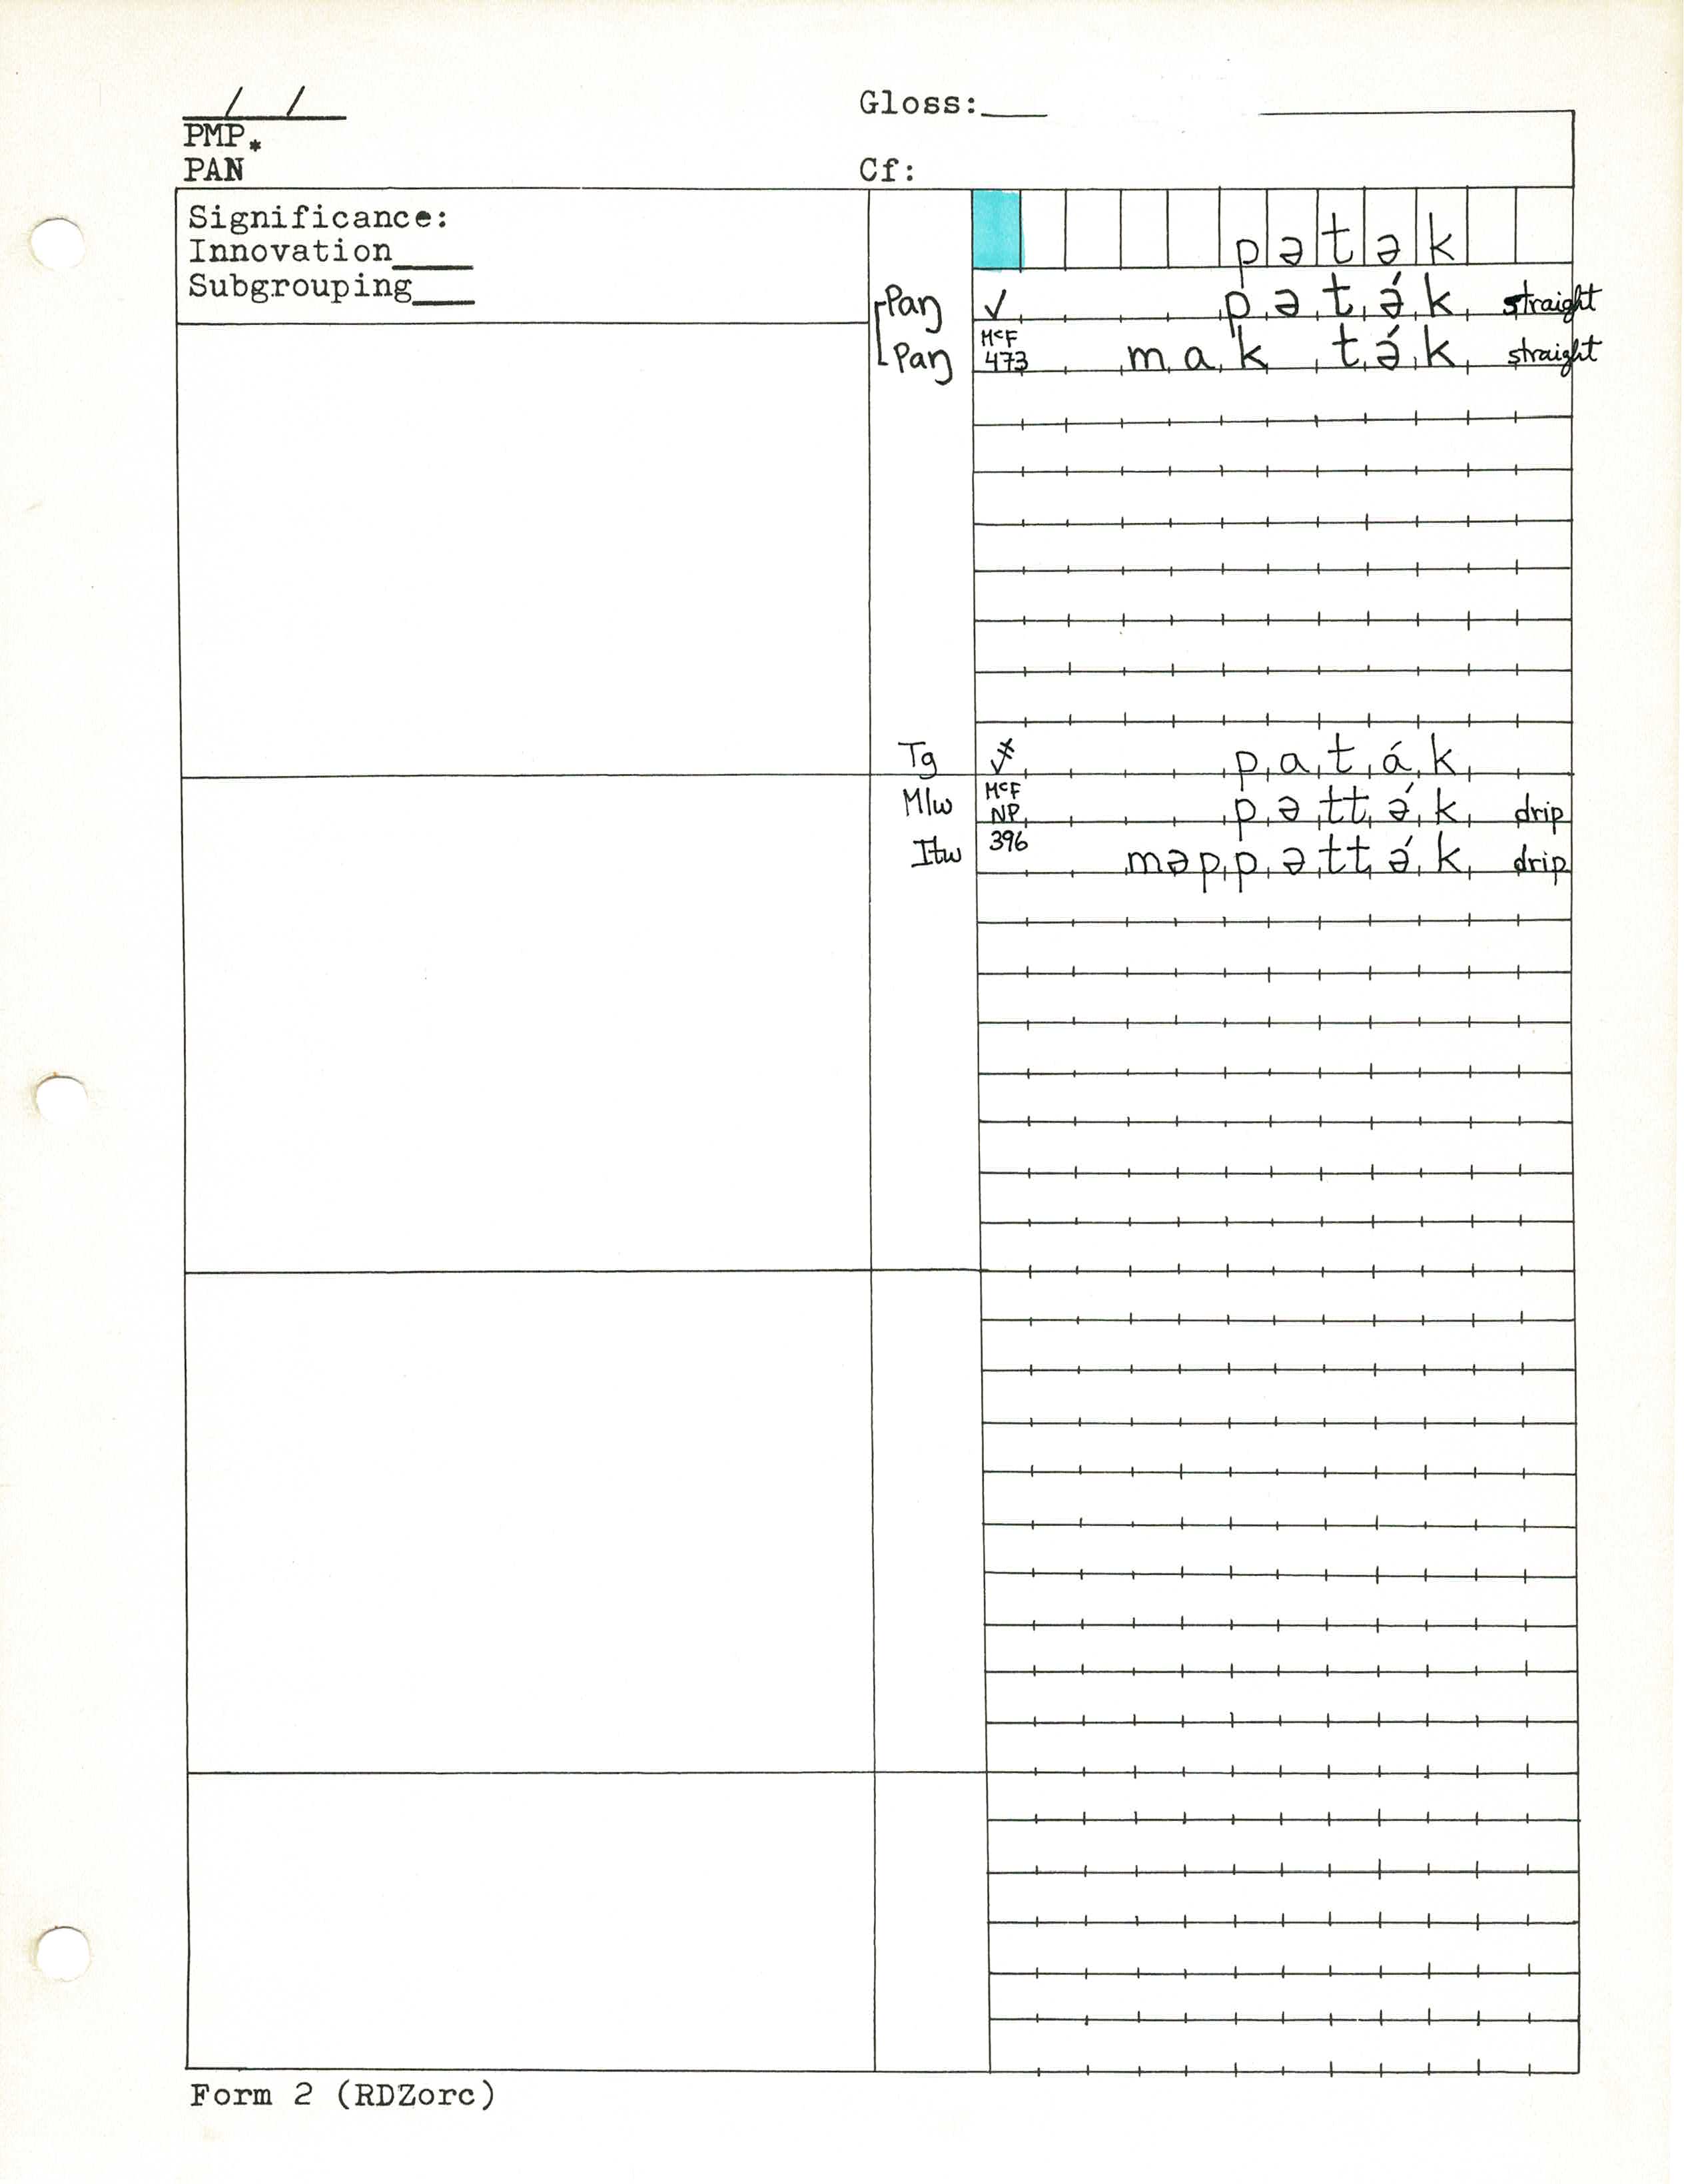 / /
Gloss:___
PMP*
PAN
Cf:
Significance:
Innovation____
Subgrouping___
pətək
Paŋ ✓ pəták straight
Paŋ McF 473 mak tə́k straight
Tg paták
Mlw McF NP pəttə́k drip
Itw 396 məppəttə́k drip
Form 2 (RDZorc)